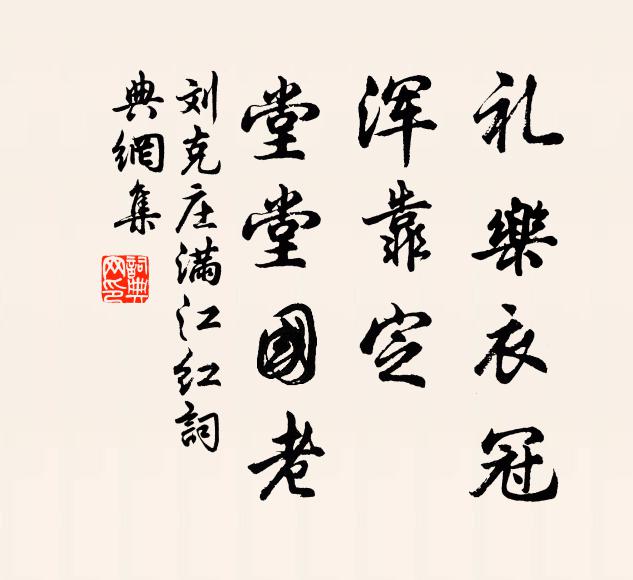 礼樂衣冠
渾靠定
堂堂國老
刘克庄满江红詞
典網集
詞典網印